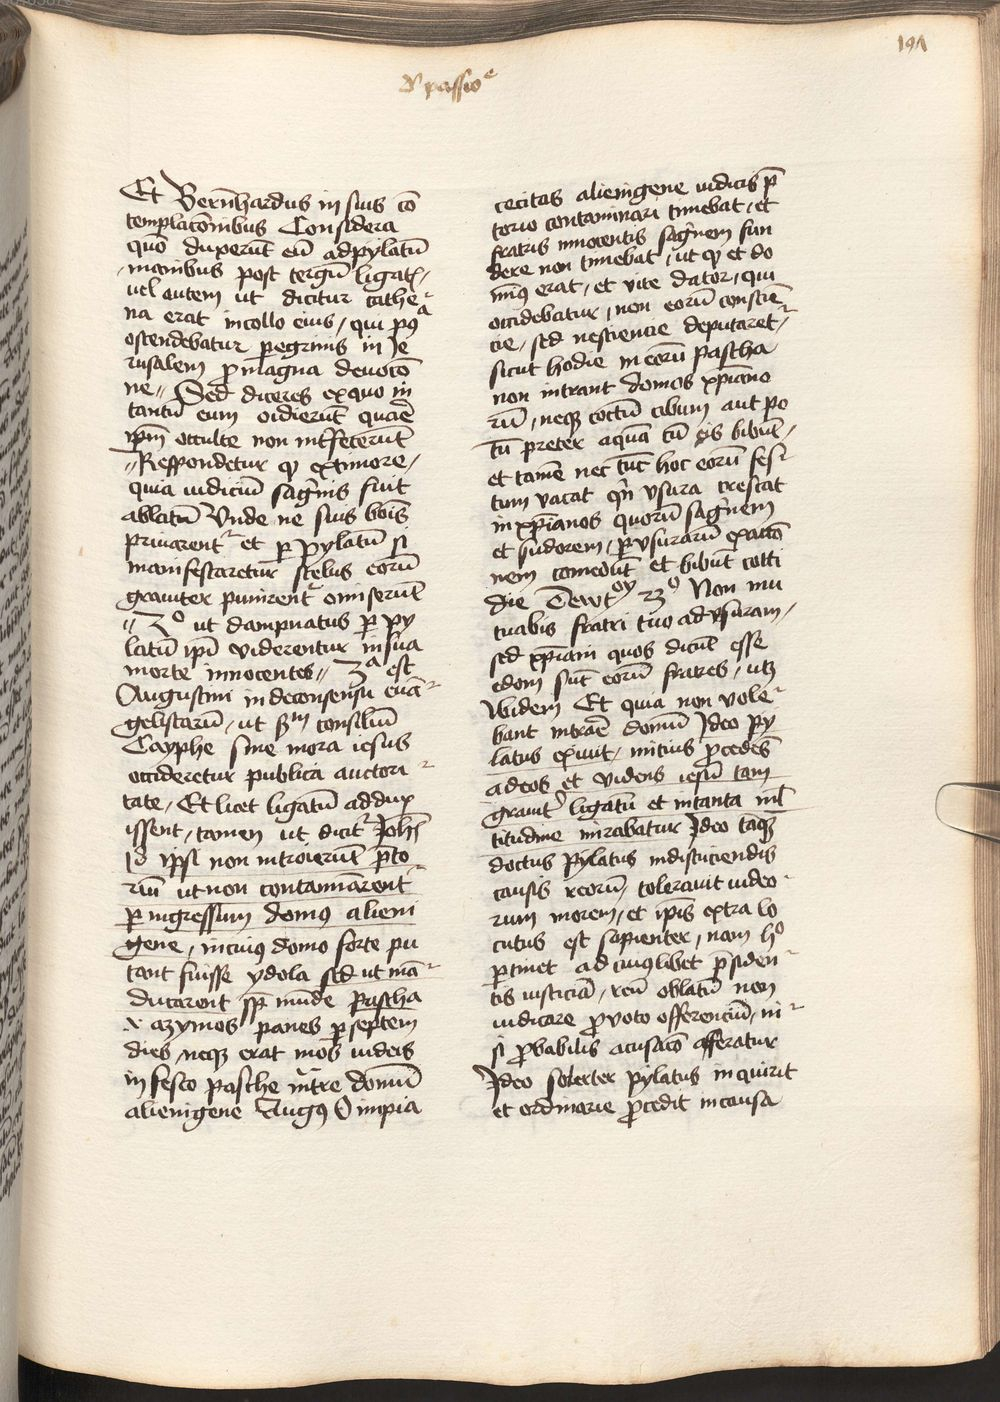 191
d' passioe
Et Bern̄hardus in suis cō
templacōnibus Considera
quō duxerūt eū ad pylatū
manibus post tergū ligat̄
uel autem ut dicitur cathe
na erat in collo eius / qui p9q̄
ostendebatur p̲egrinis in Je
rusalem p̱ magna deuocō
ne // Sed diceres ex quo in
tantū eum oidierūt quar̄e
ip̄m occulte non int̄fecerūt
// Respondetur q̄ ex timore /
quia iudiciū sag̈nis fuit
ablatū Vnde ne suis boīs
priuarent̄ et p̲ pylatū si
manifestaretur scelus eorū
grauiter punirent̄ omiserūt
// 2o ut dampnatus p̲ py
latū ip̄i viderentur in sua
morte innocentes // 3a est
Augustini in de consensu euā
gelistarū / ut s̄m consiliū
Cayphe sine mora iesus
occideretur publica auctori
tate / Et licet ligatū addux
issent / tamen ut dicit̄ Joh̄
18 ip̄si non introierūt p̄to
riū ut non contamīarent̄
p̲ ingressum domus alieni
gene / in cui9 domo forte pu
tant fuisse ydola sed ut mā
ducarent sp̄ mūde pascha
& azymos panes p̲ septem
dies / neq3 erat mos iudeis
in festo pasche int̄re domū
alienigene Aug9 O impia
cecitas alienigene iudicis p̄
torio contaminari timebat / et
fratris innocentis sag̈nem fun
dere non timebat / ut q̄ et do
min9 erat / et vite dator / qui
occidebatur / non eorū consciē
cie / sed nesciencie deputaret̄ /
sicut hodie in eorū pascha
non intrant domos xp̄iano
rū / neq3 coctū cibum aut po
tū preter aquā cū eis bibūt /
et tamē nec tūc hoc eorū fes
tum vacat qn̄ vsura crescat
in xp̄ianos quorū sag̈nem
et sudorem / p̲ vsurarū exactō
nem comedūt et bibūt cotti
die Dewt̄ 23o Non mu
tuabis fratri tuo ad vsuram /
sed xp̄iani quos dicūt esse
edom sūt eorū fratres / ut3
ibidem Et quia non vole
bant intrar̄e domū Ideo py
latus exiuit / mitius p̱cedēs
ad eos et videns iesū tam
grauit̄ ligatū et in tanta ml̄
titudine mirabatur Ideo taq̄3
doctus pylatus in discuciendis
causis reorū / tolerauit iudeo
rum morem / et ip̄is extra lo
cutus est sapienter / nam ho
p̲tinet ad cui9libet p̄siden
tis iusticiā / reū oblatū non
iudicare p̱ voto offerenciū / ni
si p̱babilis acusacō afferatur
Ideo solerter pylatus inquirit
et ordinarie p̱cedit in causa